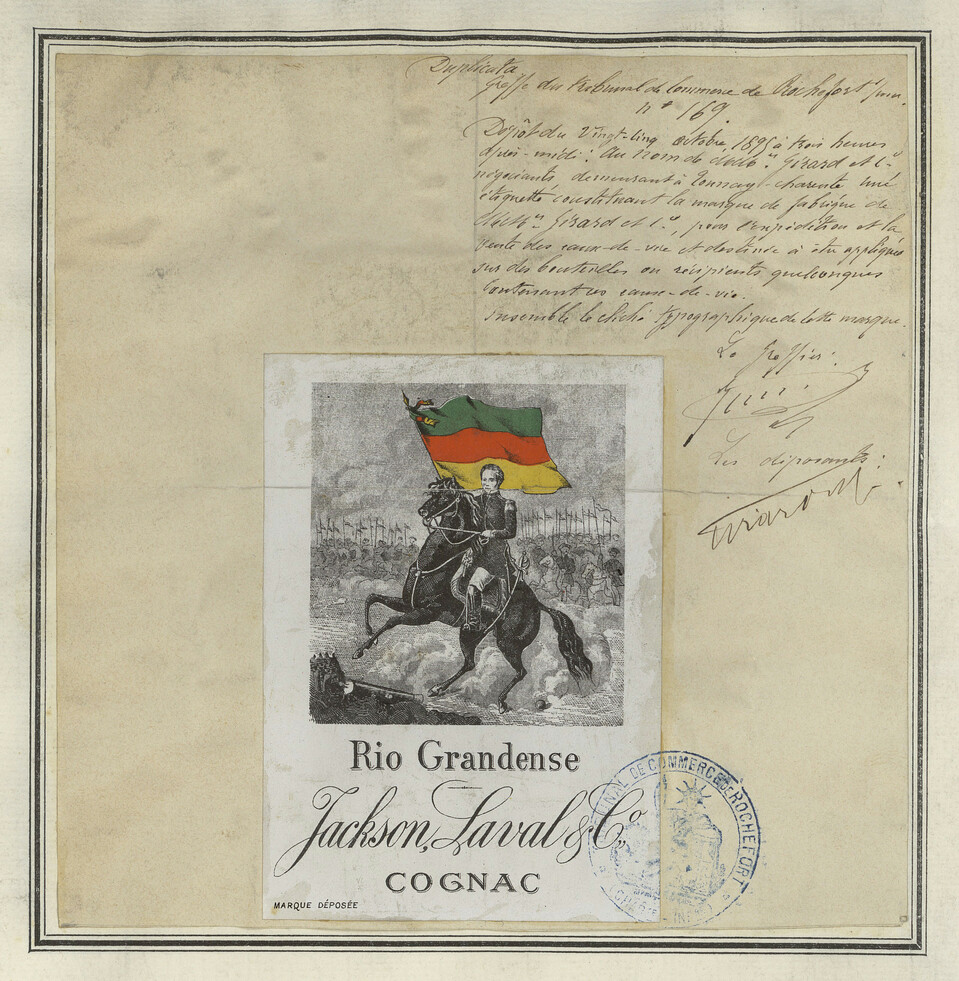 Duplicata
Greffe du tribunal de Commerce de Rochefort s/mer.
n° 169.
Dépôt du Vingt-Cinq octobre 1895 à trois heures
après-midi: Au nom de MM. Girard et Cie
négociants demeurant à Tonnay-Charente une
étiquette constituant la marque de fabrique de
MM. Girard et Cie, pour l'expédition et la
vente des eaux-de-vie et destinée à être appliquée
sur des bouteilles ou récipients quelconques
Contenant ces eaux-de-vie.
Ensemble le cliché typographique de cette marque.
Le Greffier:
Les déposants:
Girard
Rio Grandense
Jackson, Laval & Co.
COGNAC
MARQUE DÉPOSÉE
TRIBUNAL DE COMMERCE DE ROCHEFORT